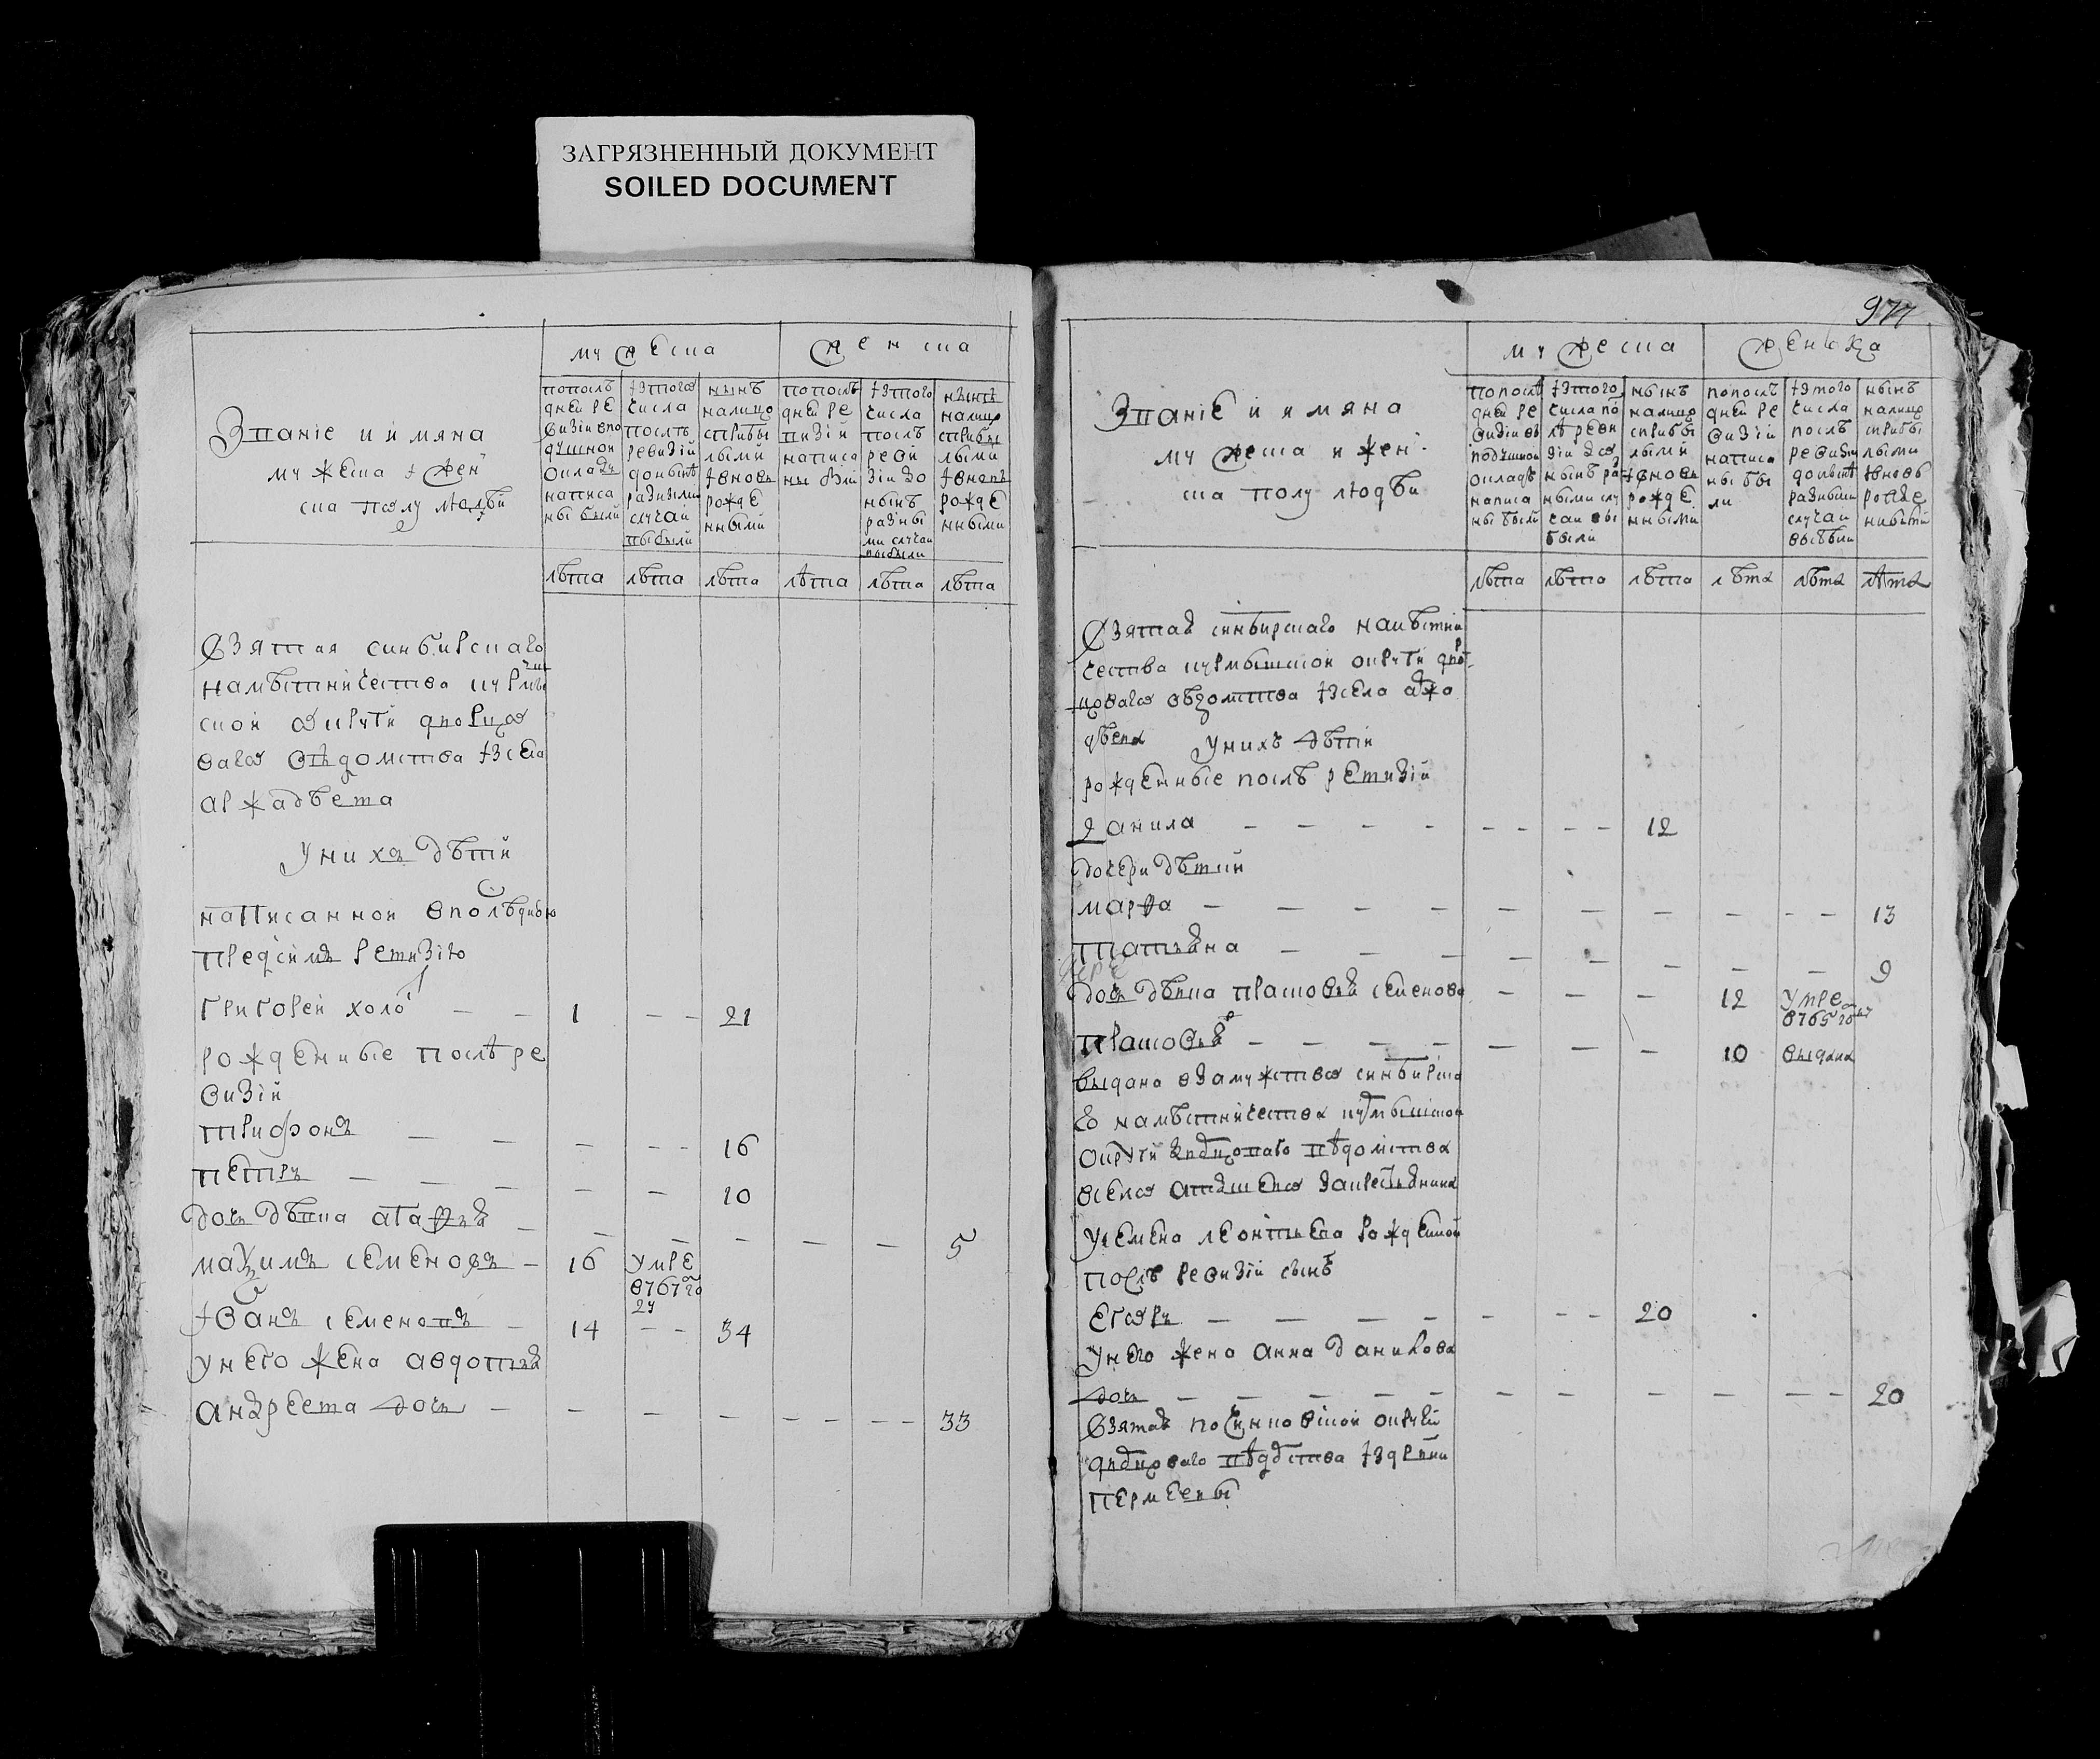 ЗАГРЯЗНЕННЫЙ ДОКУМЕНТ
SOILED DOCUMENT
мужеска
женска
Звание и имяна
мужеска и жен
ска полу людѣй
попослѣ
дней ре
визии впо
душном
окладу
написа
ны были
изтого
числа
послѣ
ревизии
донынѣ
разными
случаи
выбыли
нынѣ
налицо
сприбы
лыми
ивновь
рожде
нными
попослѣ
дней ре
визии
написа
ны были
изтого
числа
послѣ
реви
зии до
нынѣ
разны
ми случаи
выбыли
нынѣ
налицо
сприбы
лыми
ивновь
рожде
нными
лѣта лѣта лѣта лѣта лѣта лѣта
взятая синбирскаго
намѣстничества курмы
ской округи дворцо
ваго вѣдомства изсела
унихъ дѣти
написанной впослѣднюю
предсимъ ревизию
Григорей холо 1 21
рожденные послѣ ре
визии
трифонъ 16
петръ 10
дочь дѣвка агафья 5
максимъ семеновъ 16 умре
в767 го
иванъ семеновъ 14 34
унего жена авдотья
андреева дочь 33
977
мужеска
женска
Звание и имяна
мужеска и жен
ска полу людѣи
попослѣ
дней ре
визии въ
подушном
окладѣ
написа
ны были
изтого
числа по
слѣ реви
зии до
нынѣ ра
зными слу
чаи вы
были
нынѣ
налицо
сприбы
лыми
ивновь
рожде
нными
попослѣ
дней ре
визии
написа
ны бы
ли
изтого
числа
послѣ
ревизии
донынѣ
разными
случаи
выбыли
нынѣ
налицо
сприбы
лыми
ивновь
рожде
лѣта лѣта лѣта лѣта лѣта лѣта
взятая синбирскаго намѣстни
чества курмышской округи двор
цоваго вѣдомства изсела
унихъ дѣти
рожденные послѣ ревизии
данила 12
дочери дѣвки
марфа 13
татьяна 9
дочь дѣвка прасковья семенова 12 умре
в765 году
прасковья 10 выдана
выдана взамужство синбирска
го намѣстничества курмышской
округи дворцоваго вѣдомства
всело закрестьянина
усемена леонтьева рожденной
послѣ ревизии сынъ
егоръ 20
унего жена анна данилова
дочь 20
взятая округи
дворцоваго вѣдомства издрвни